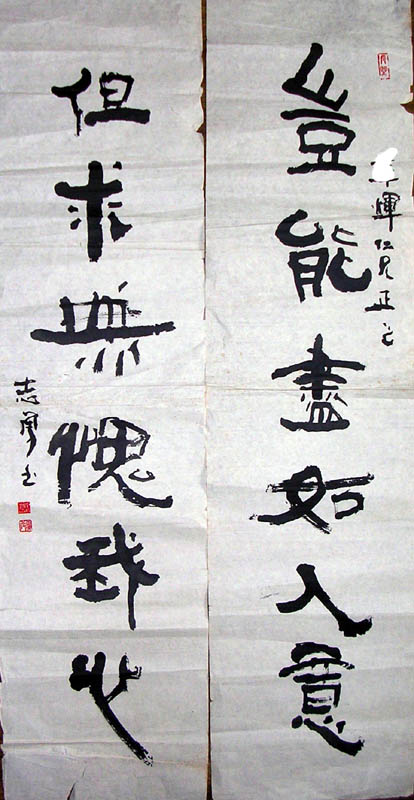 仁兄正之
豈能盡如人意
但求無愧我心
志勇书